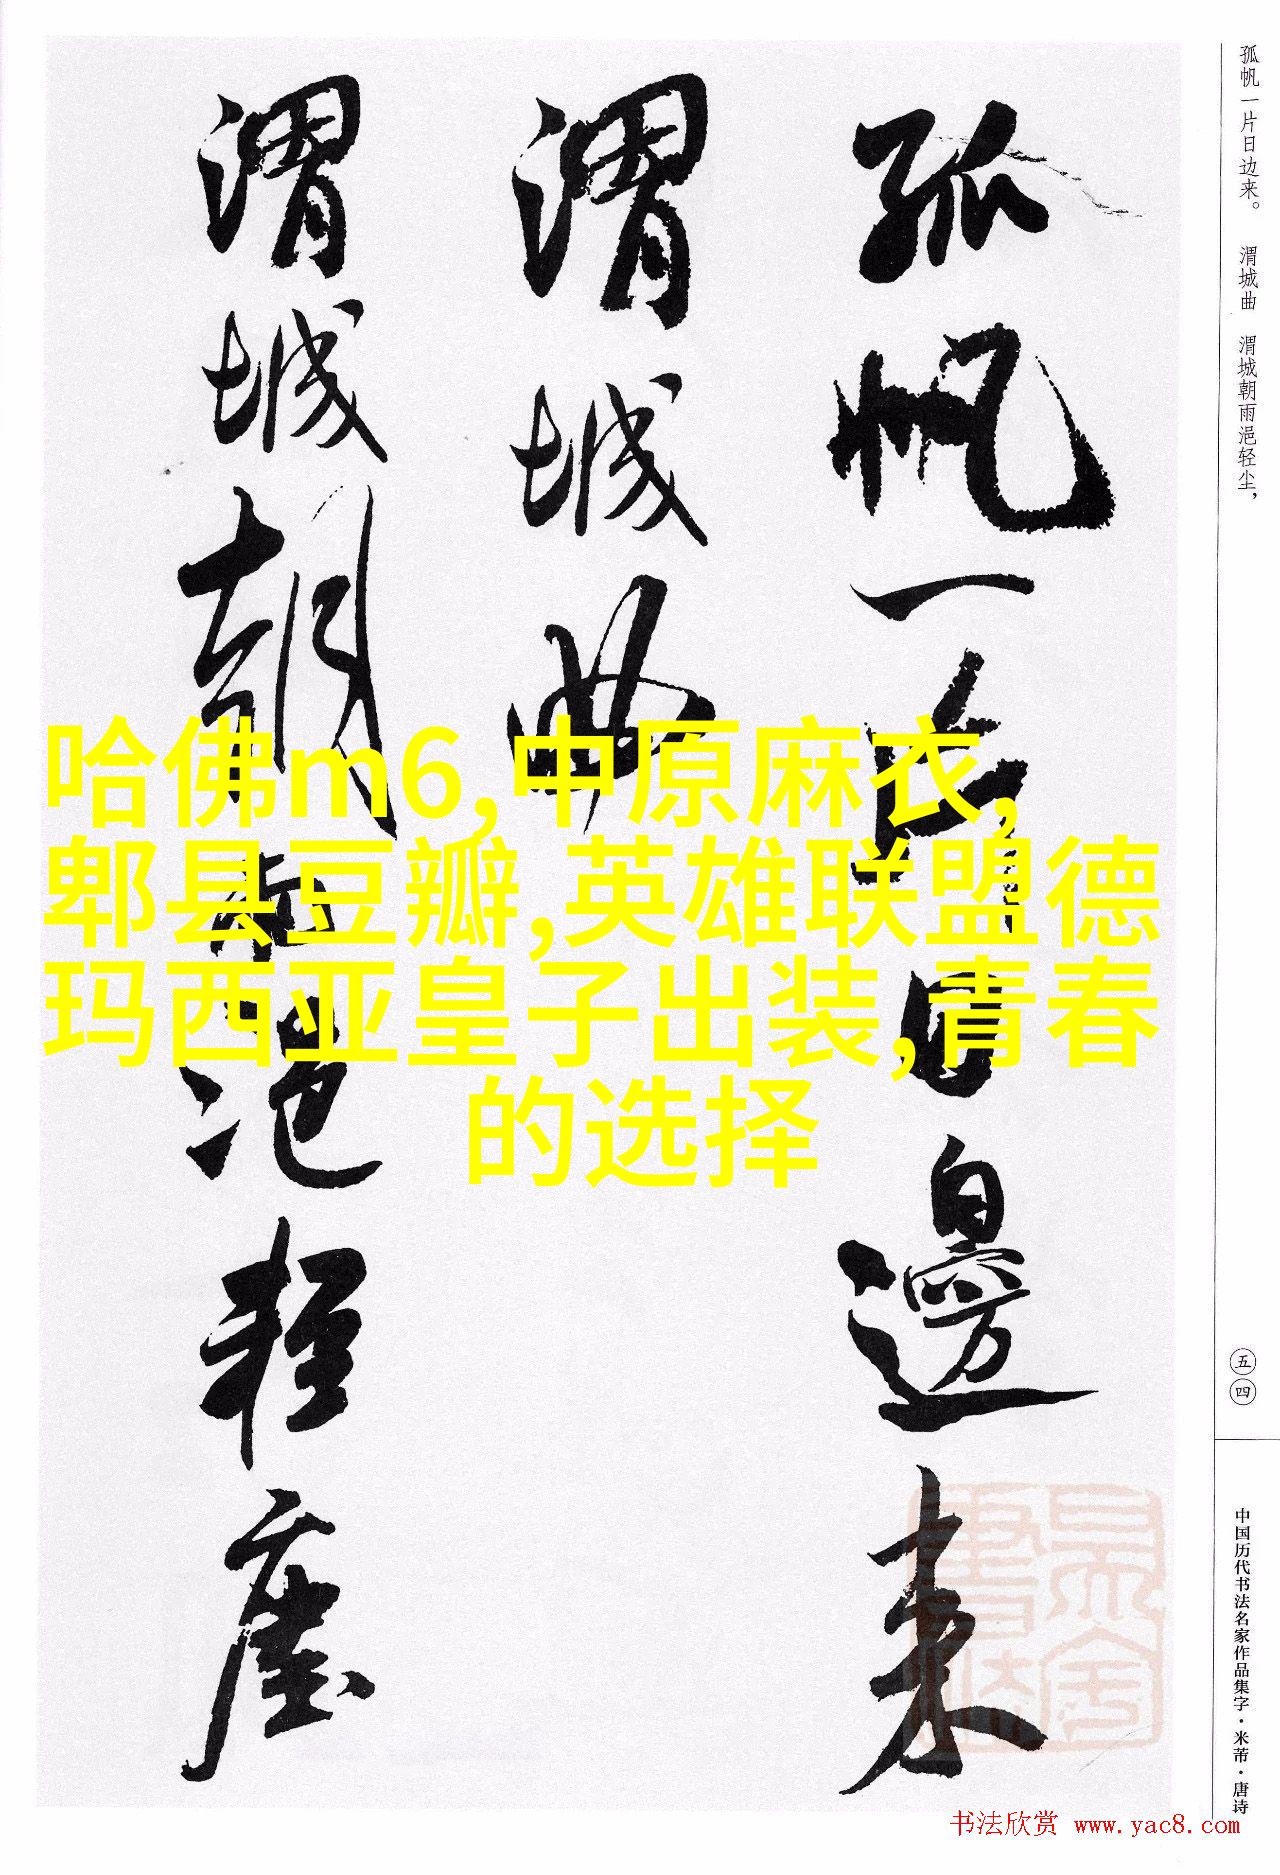 孤帆一片日邊来
渭城曲
渭城朝雨浥輕塵
哈佛m6,中原麻衣,
郫县豆瓣,英雄联盟德
玛西亚皇子出装,青春
的选择
孤帆一片日边来。 渭城曲 渭城朝雨浥轻尘，
五四
中国历代书法名家作品集字·米芾·唐诗
书法欣赏 www.yac8.com